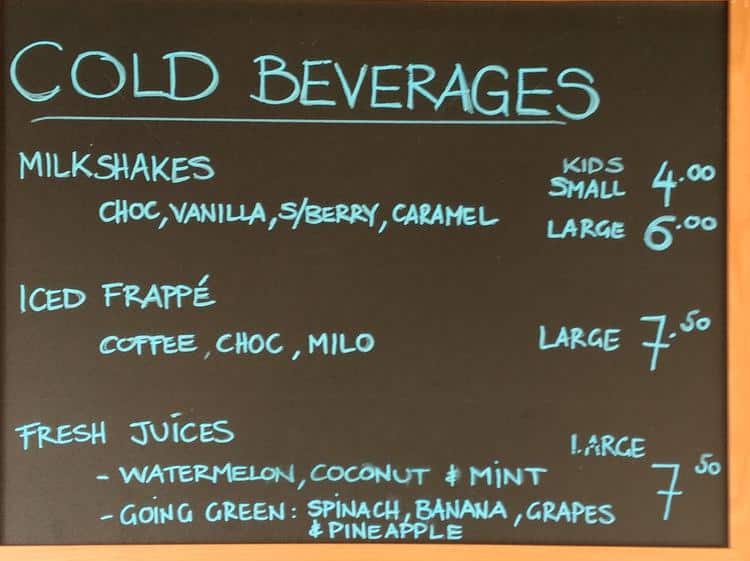 COLD BEVERAGES
MILKSHAKES KIDS SMALL 4.00
CHOC, VANILLA, S/BERRY, CARAMEL LARGE 6.00
ICED FRAPPÉ
COFFEE, CHOC, MILO LARGE 7.50
FRESH JUICES LARGE
- WATERMELON, COCONUT & MINT 7 50
- GOING GREEN: SPINACH, BANANA, GRAPES
& PINEAPPLE